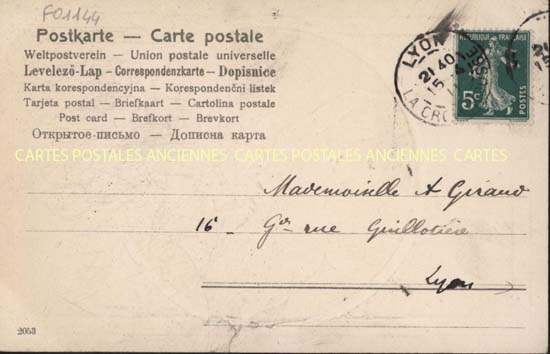 F01144
Postkarte — Carte postale
Weltpostverein — Union postale universelle
Levelező-Lap — Correspondenzkarte — Dopisnice
Karta korespondencyjna — Korespondenční listek
Tarjeta postal — Briefkaart — Cartolina postale
Post card — Brefkort — Brevkort
Открытое-письмо — Дописна карта
LYON
21 40
15
LA CRO
RÉPUBLIQUE FRANÇAISE
5c
POSTES
CARTES POSTALES ANCIENNES CARTES POSTALES ANCIENNES CARTES
Mademoiselle A Giraud
16 - Gde rue Guillotière
Lyon
2053